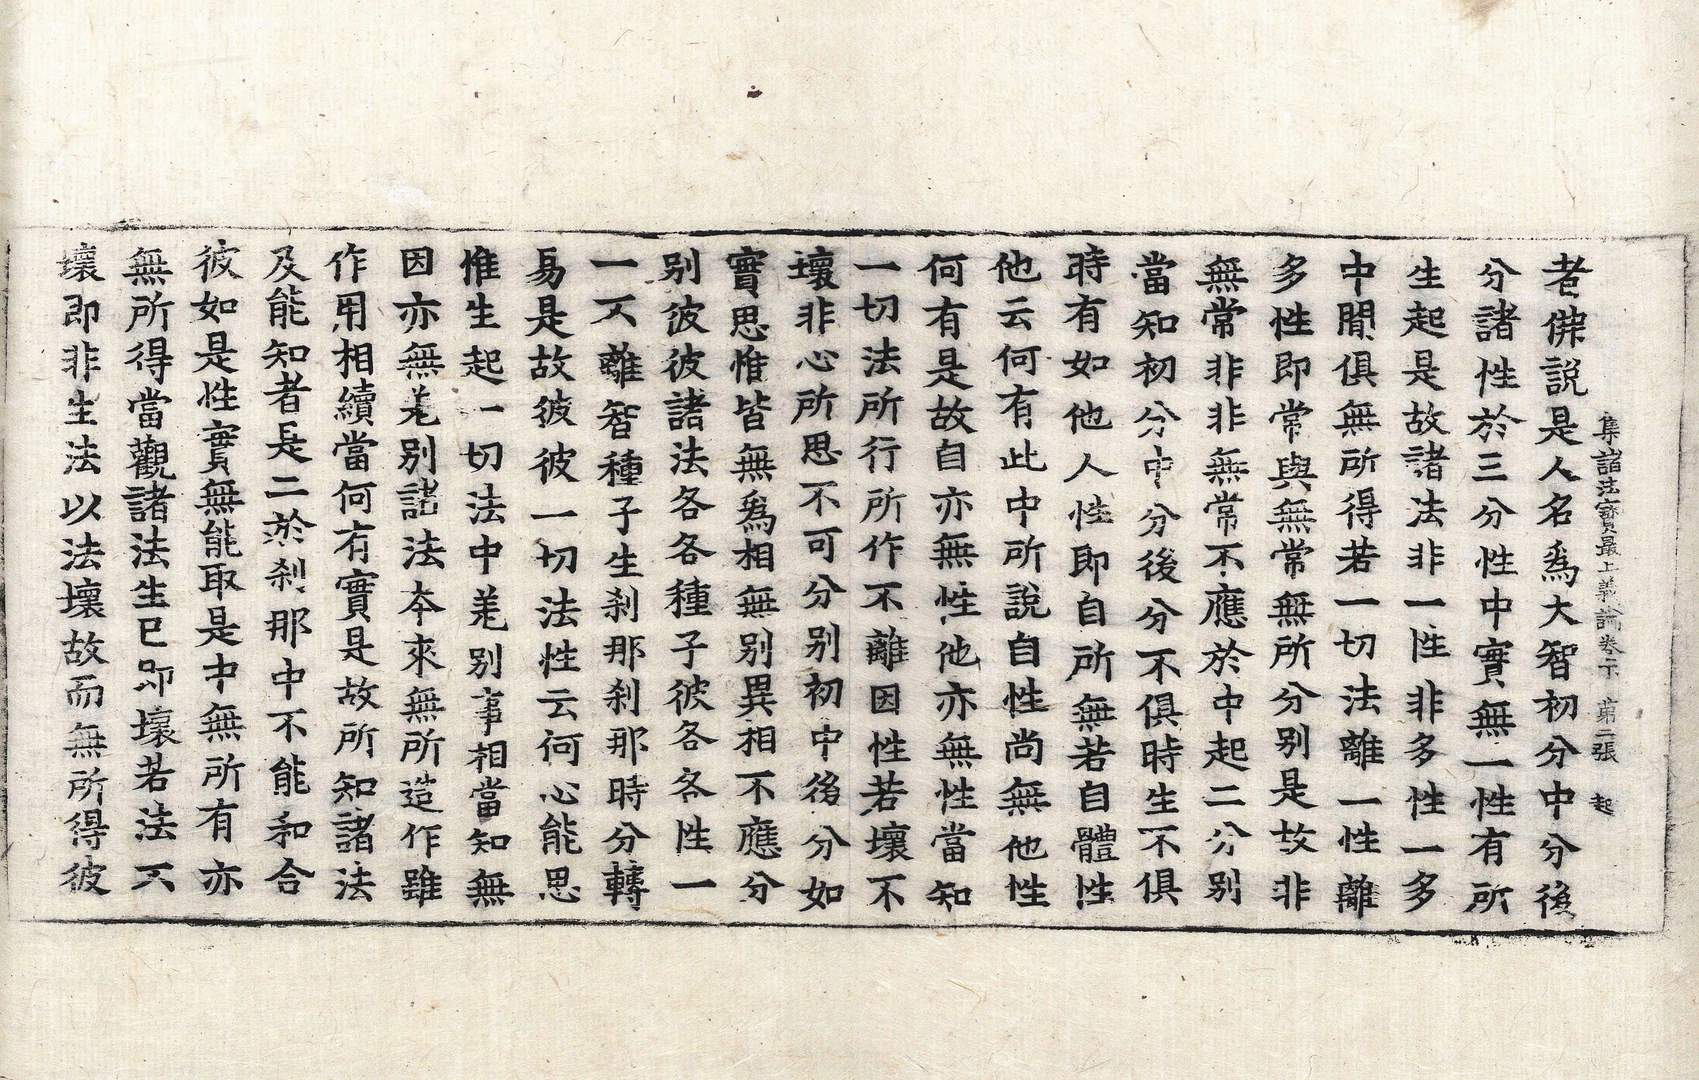 集諸法寶最上義論卷下 第二張 起
者佛說是人名爲大智初分中分後
分諸性於三分性中實無一性有所
生起是故諸法非一性非多性一多
中間俱無所得若一切法離一性離
多性即常與無常無所分別是故非
無常非非無常不應於中起二分別
當知初分中分後分不俱時生不俱
時有如他人性即自所無若自體性
他云何有此中所說自性尚無他性
何有是故自亦無性他亦無性當知
一切法所行所作不離因性若壞不
壞非心所思不可分別初中後分如
實思惟皆無爲相無別異相不應分
別彼彼諸法各各種子彼各各性一
一不離智種子生剎那剎那時分轉
易是故彼彼一切法性云何心能思
惟生起一切法中差別事相當知無
因亦無差別諸法本來無所造作雖
作用相續當何有實是故所知諸法
及能知者是二於剎那中不能和合
彼如是性實無能取是中無所有亦
無所得當觀諸法生已即壞若法不
壞即非生法以法壞故而無所得彼